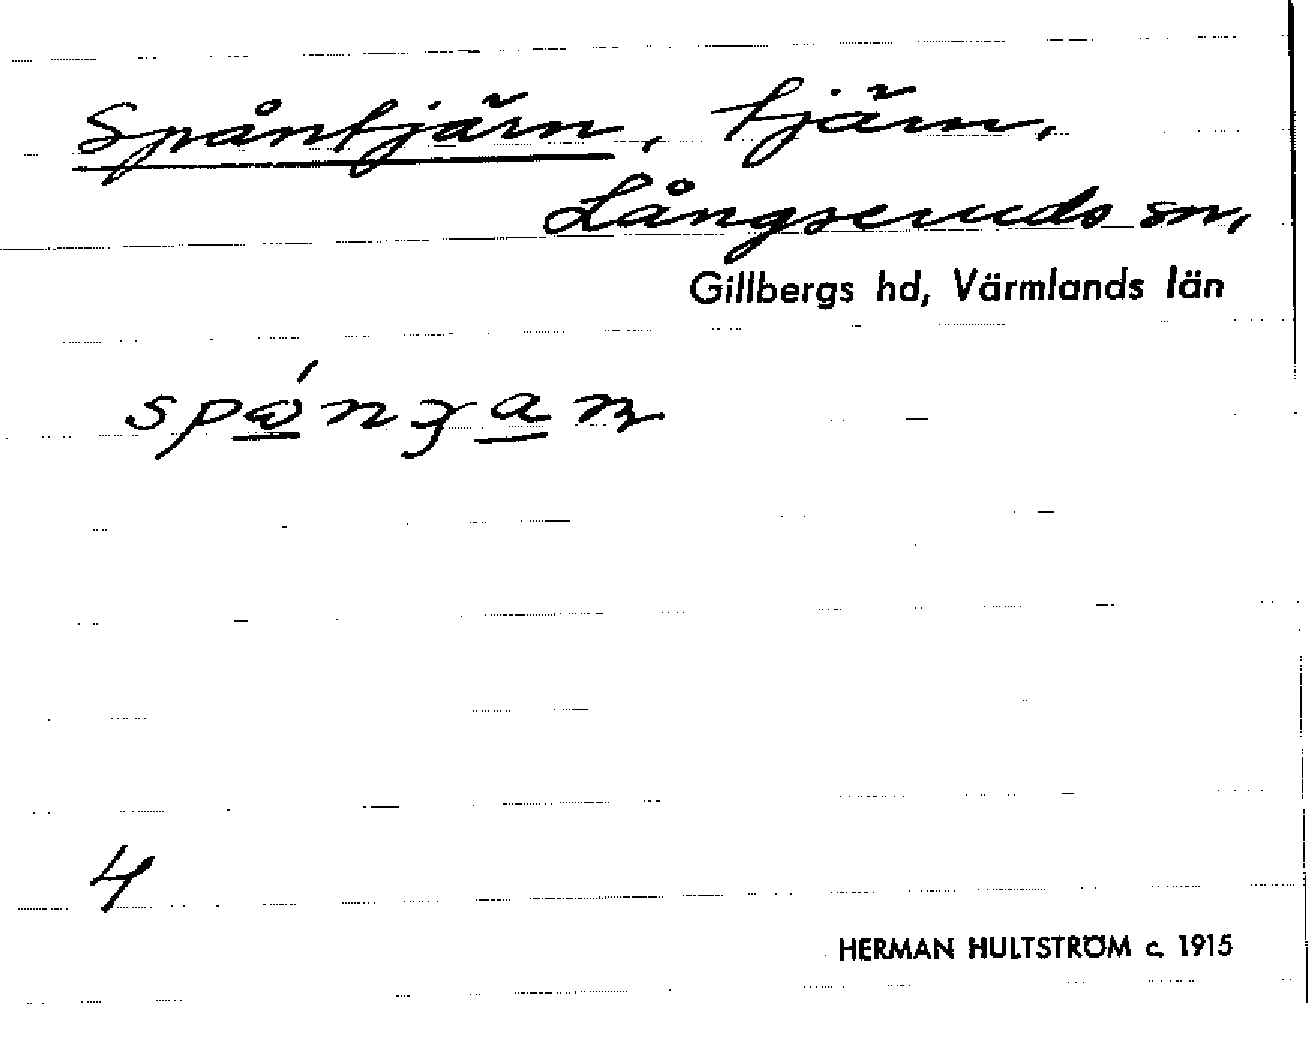 Spåntjärn, tjärn,
Långseruds sn,
Gillbergs hd, Värmlands län
4
HERMAN HULTSTRÖM c. 1915